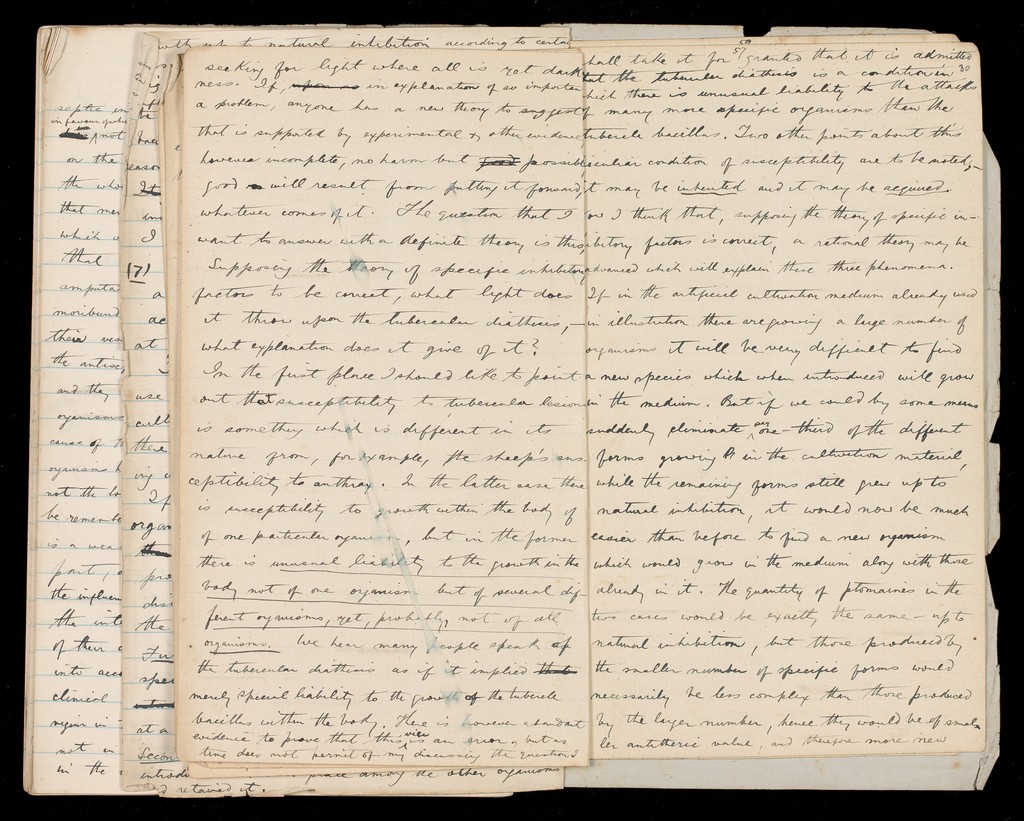 with up to natural inhibition according to certai
seeking for light where all is yet dark
ness. If, in explanation of so importan
a problem, anyone has a new theory to suggest
that is supported by experimental & other evidence
however incomplete, no harm but possibl
good will result from putting it forward,
whatever comes of it. The question that I
want to answer with a definite theory is this,
Supposing the theory of specific inhibitory
factors to be correct, what light does
it throw upon the tubercular diathesis,—
what explanation does it give of it?
In the first place I should like to point
out that susceptibility to tubercular lesion
is something which is different in its
nature from, for example, the sheep's sus-
ceptibility to anthrax. In the latter case there
is susceptibility to growth within the body of
of one particular organism, but in the former
there is unusual liability to the growth in the
body not of one organism but of several dif-
ferent organisms, yet, probably, not of all
organisms. We hear many people speak of
the tubercular diathesis as if it implied
merely special liability to the growth of the tubercle
bacillus within the body. There is however abundant
evidence to prove that this view is an error, but as
time does not permit of my discussing the question I
place among the other organisms
and retained it.
59
57
30
hall take it for granted that it is admitted
that the tubercular diathesis is a condition in
hich there is unusual liability to the attacks
of many more specific organisms than the
tubercle bacillus. Two other points about this
eculiar condition of susceptibility are to be noted,—
it may be inherited and it may be acquired.
ow I think that, supposing the theory of specific in-
ibitory factors is correct, a rational theory may be
advanced which will explain these three phenomena.
If in the artificial cultivation medium already used
in illustration there are growing a large number of
organisms it will be very difficult to find
a new species which when introduced will grow
in the medium. But if we could by some means
suddenly eliminate say one-third of the different
forms growing in the cultivation material,
while the remaining forms still grew up to
natural inhibition, it would now be much
easier than before to find a new organism
which would grow in the medium along with those
already in it. The quantity of ptomaines in the
two cases would be exactly the same — up to
natural inhibition, but those produced by
the smaller number of specific forms would
necessarily be less complex than those produced
by the larger number, hence they would be of smal-
ler antitheric value, and therefore more new
septic in
in favour of wh
not
on the
the who
that mer
which w
that
amputa
moribund
their ves
the antisep
and they
organisms
cause of th
organisms h
not the to
be remembe
is a wea
part, a
the influen
the int
of their o
into acco
clinical
regain in
not in
in the
(7)
It
I
at
use
cult
there
ing
If
organ
pro
dis
the
Fur
spec
at a
Secon
introdu